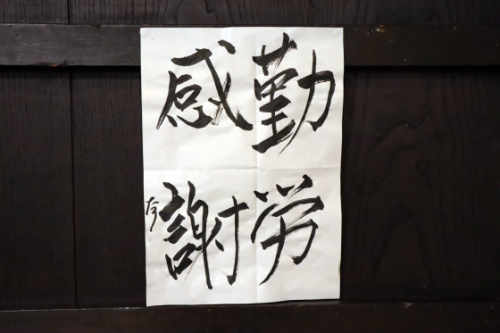 勤労
感謝